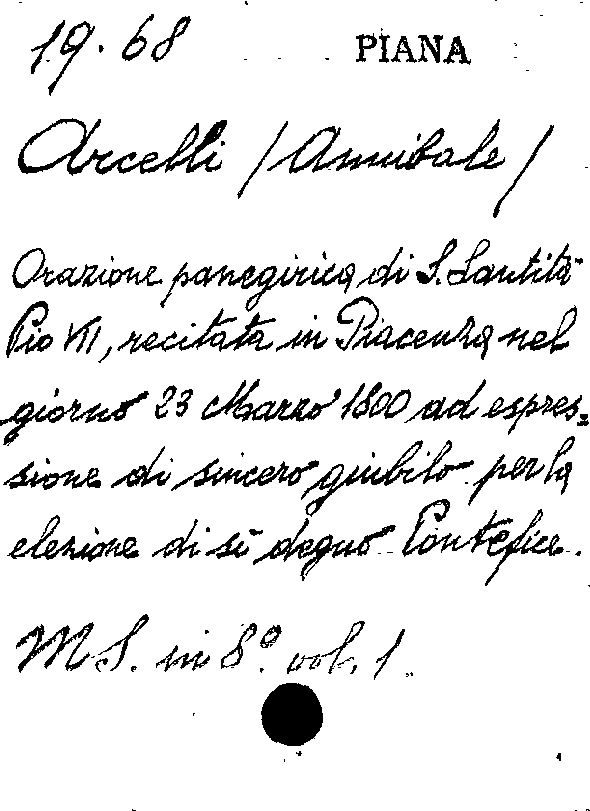 19.68 PIANA
Arcelli / Annibale /
Orazione panegirica di S. Santità
Pio VII, recitata in Piacenza nel
giorno 23 Marzo 1800 ad espres=
sione di sincero giubilo per la
elezione di sì degno Pontefice.
MS. in 8º. vol. 1